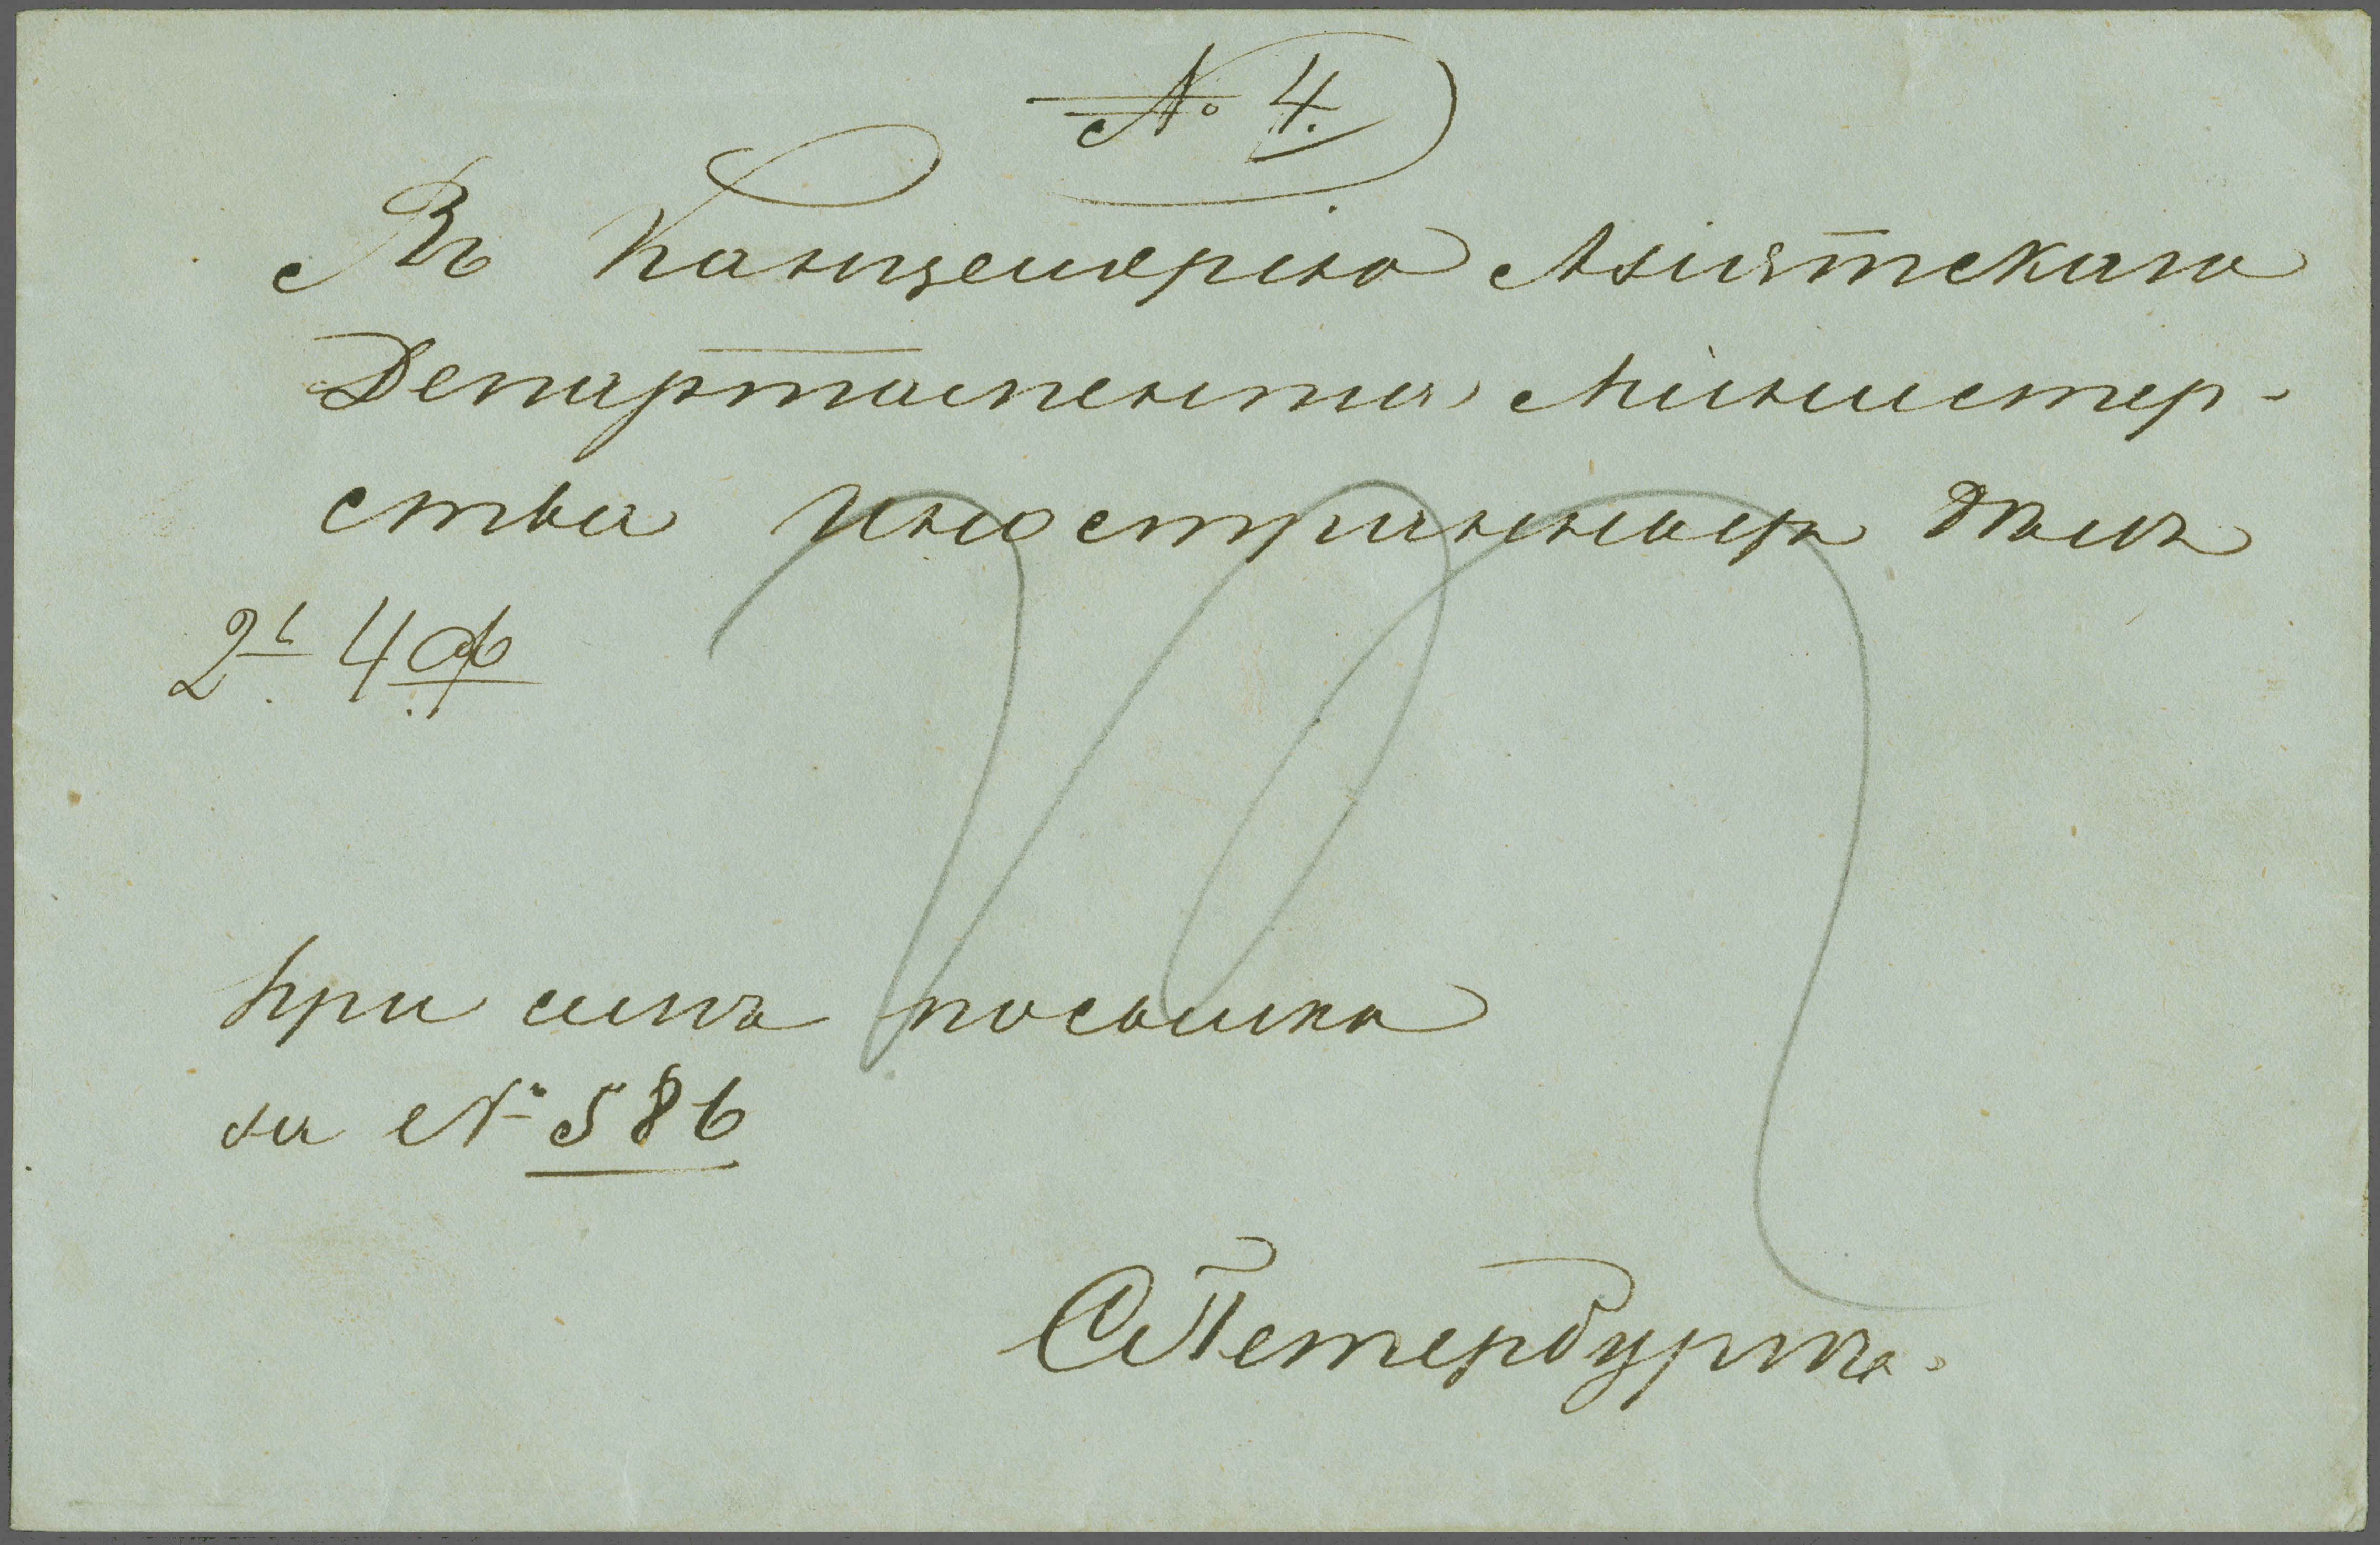 № 4.
Въ Канцелярію Азіятскаго
Департамента Министер-
ства Иностранныхъ Дѣлъ
при семъ посылка
за № 586
СПетербургъ.